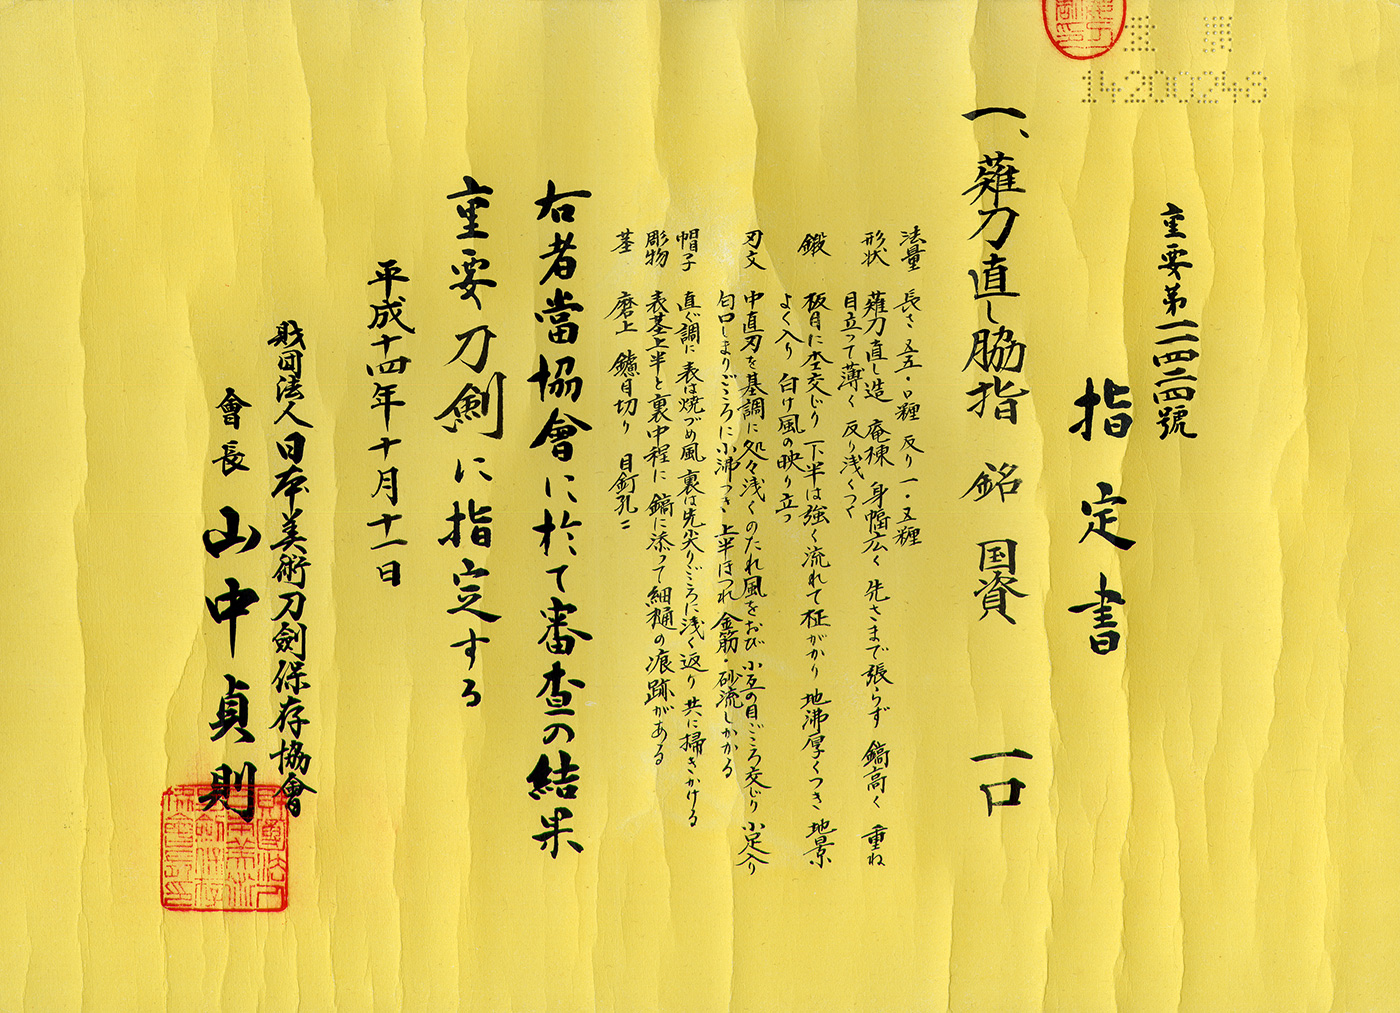 重要
14200248
重要第一一四二四號
指定書
一、薙刀直し脇指 銘 国資 一口
法量 長さ 五五・口糎 反り 一・五糎
形状 薙刀直し造 庵棟 身幅広く 先さまで張らず 鎬高く 重ね
目立って薄く 反り浅くつく
鍛 板目に杢交じり 下半は強く流れて柾がかり 地沸厚くつき 地景
よく入り 白け風の映り立つ
刃文 中直刃を基調に処々浅くのたれ風をおび 小互の目ごころ交じり 小足入り
匂口しまりごころに小沸つき 上半ほつれ 金筋・砂流しかかる
帽子 直ぐ調に 表は焼づめ風 裏は先尖りごころに浅く返り 共に掃きかける
彫物 表茎上半と裏中程に 鎬に添って細樋の痕跡がある
茎 磨上 鑢目切り 目釘孔二
右者當協會に於て審査の結果
重要刀剣に指定する
平成十四年十月十一日
財団法人日本美術刀劍保存協會
會長 山中貞則